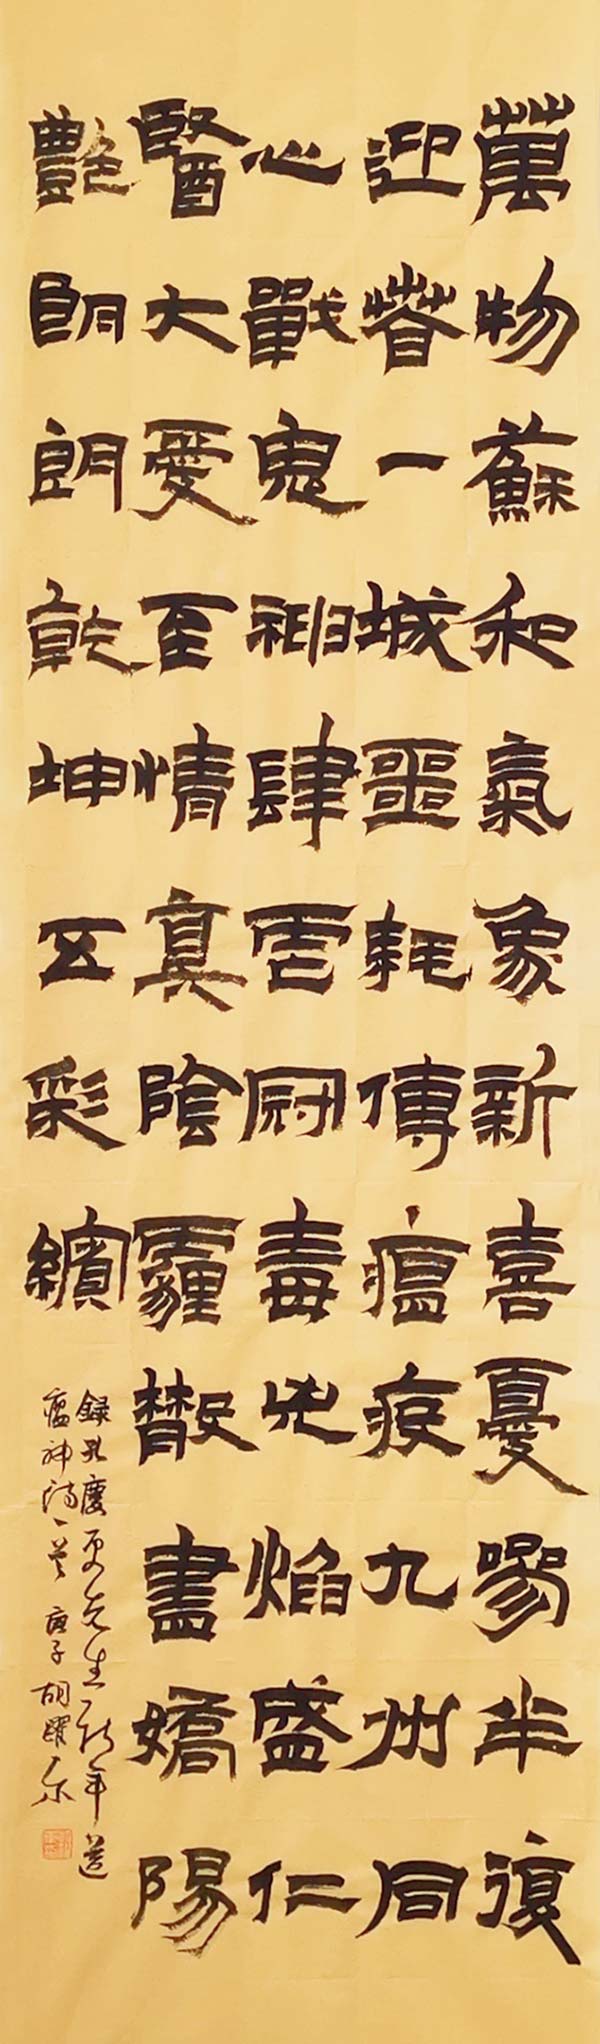 萬物蘇和氣象新喜憂參半復
迎春一城噩耗傳瘟疫九州同
心戰鬼神肆虐冠毒凶焰盛仁
醫大愛至情真陰霾散盡嬌陽
艷朗朗乾坤五彩繽
錄孔慶更先生新年送
瘟神詩一首 庚子 胡躍尔